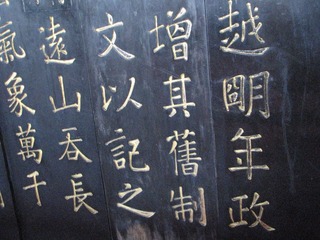 越明年政
增其舊制
文以記之
遠山吞長
氣象萬千